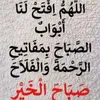 اللَّهُمَّ افْتَحْ لَنَا
أَبْوَابَ
الصَّبَاحِ بِمَفَاتِيحِ
الرَّحْمَةِ وَالْفَلَاحِ
صَبَاحُ الْخَيْرِ